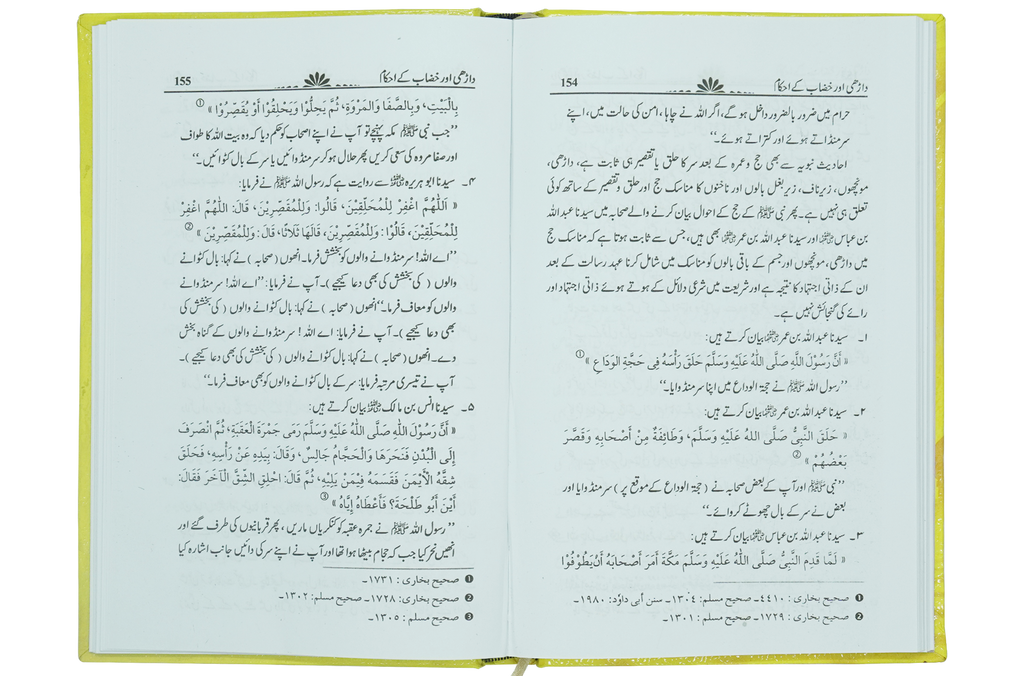 داڑھی اور خضاب کے احکام 154
حرام میں ضرور بالضرور داخل ہو گے، اگر اللہ نے چاہا، امن کی حالت میں، اپنے
سر منڈاتے ہوئے اور کتراتے ہوئے۔‘‘
احادیث نبویہ سے بھی حج و عمرہ کے بعد سر کا حلق یا تقصیر ہی ثابت ہے، داڑھی،
مونچھوں، زیر ناف، زیر بغل بالوں اور ناخنوں کا مناسک حج اور حلق و تقصیر کے ساتھ کوئی
تعلق ہی نہیں ہے۔ پھر نبی ﷺ کے حج کے احوال بیان کرنے والے صحابہ میں سیدنا عبداللہ
بن عباس رضی اللہ عنہ اور سیدنا عبداللہ بن عمر رضی اللہ عنہ بھی ہیں، جس سے ثابت ہوتا ہے کہ مناسک حج
میں داڑھی، مونچھوں اور جسم کے باقی بالوں کو مناسک میں شامل کرنا عہد رسالت کے بعد
ان کے ذاتی اجتہاد کا نتیجہ ہے اور شریعت میں شرعی دلائل کے ہوتے ہوئے ذاتی اجتہاد اور
رائے کی گنجائش نہیں ہے۔
۱۔ سیدنا عبداللہ بن عمر رضی اللہ عنہ بیان کرتے ہیں:
« أَنَّ رَسُوْلَ اللّٰهِ صَلَّى اللّٰهُ عَلَيْهِ وَسَلَّمَ حَلَقَ رَأْسَهُ فِى حَجَّةِ الْوَدَاعِ » ①
’’رسول اللہ ﷺ نے حجۃ الوداع میں اپنا سر منڈوایا۔‘‘
۲۔ سیدنا عبداللہ بن عمر رضی اللہ عنہ بیان کرتے ہیں:
« حَلَقَ النَّبِىُّ صَلَّى اللهُ عَلَيْهِ وَسَلَّمَ، وَطَائِفَةٌ مِنْ أَصْحَابِهِ وَقَصَّرَ
بَعْضُهُمْ » ②
’’نبی ﷺ اور آپ کے بعض صحابہ نے ( حجۃ الوداع کے موقع پر ) سر منڈوایا اور
بعض نے سر کے بال چھوٹے کروائے۔‘‘
۳۔ سیدنا عبداللہ بن عباس رضی اللہ عنہ بیان کرتے ہیں:
« لَمَّا قَدِمَ النَّبِىُّ صَلَّى اللّٰهُ عَلَيْهِ وَسَلَّمَ مَكَّةَ أَمَرَ أَصْحَابَهُ أَنْ يَطُوْفُوْا
❶ صحیح بخاری : ۴۴۱۰۔ صحیح مسلم: ۱۳۰۴۔ سنن أبی داوٗد: ۱۹۸۰۔
❷ صحیح بخاری : ۱۷۲۹۔ صحیح مسلم : ۱۳۰۱۔
داڑھی اور خضاب کے احکام 155
بِالْبَيْتِ، وَبِالصَّفَا وَالْمَرْوَةِ، ثُمَّ يَحِلُّوْا وَيَحْلِقُوْا أَوْ يُقَصِّرُوْا » ①
’’جب نبی ﷺ مکہ پہنچے تو آپ نے اپنے اصحاب کو حکم دیا کہ وہ بیت اللہ کا طواف
اور صفا مروہ کی سعی کریں پھر حلال ہو کر سر منڈوائیں یا سر کے بال کٹوائیں۔‘‘
۴۔ سیدنا ابو ہریرہ رضی اللہ عنہ سے روایت ہے کہ رسول اللہ ﷺ نے فرمایا:
« اَللّٰهُمَّ اغْفِرْ لِلْمُحَلِّقِيْنَ، قَالُوْا: وَلِلْمُقَصِّرِيْنَ، قَالَ: اللّٰهُمَّ اغْفِرْ
لِلْمُحَلِّقِيْنَ، قَالُوْا : وَلِلْمُقَصِّرِيْنَ، قَالَهَا ثَلَاثًا، قَالَ: وَلِلْمُقَصِّرِيْنَ » ②
’’اے اللہ! سر منڈوانے والوں کو بخشش فرما۔ انھوں (صحابہ ) نے کہا: بال کٹوانے
والوں ( کی بخشش کی بھی دعا کیجیے )۔ آپ نے فرمایا: ’’اے اللہ! سر منڈوانے
والوں کو معاف فرما۔‘‘ انھوں (صحابہ ) نے کہا: بال کٹوانے والوں ( کی بخشش کی
بھی دعا کیجیے )۔ آپ نے فرمایا: اے اللہ ! سر منڈوانے والوں کے گناہ بخش
دے۔ انھوں (صحابہ ) نے کہا: بال کٹوانے والوں ( کی بخشش کی بھی دعا کیجیے )۔
آپ نے تیسری مرتبہ فرمایا: سر کے بال کٹوانے والوں کو بھی معاف فرما۔‘‘
۵۔ سیدنا انس بن مالک رضی اللہ عنہ بیان کرتے ہیں:
« أَنَّ رَسُوْلَ اللّٰهِ صَلَّى اللّٰهُ عَلَيْهِ وَسَلَّمَ رَمَى جَمْرَةَ الْعَقَبَةِ، ثُمَّ انْصَرَفَ
إِلَى الْبُدْنِ فَنَحَرَهَا وَالْحَجَّامُ جَالِسٌ، وَقَالَ: بِيَدِهِ عَنْ رَأْسِهِ، فَحَلَقَ
شِقَّهُ الْأَيْمَنَ فَقَسَمَهُ فِيْمَنْ يَلِيْهِ، ثُمَّ قَالَ: احْلِقِ الشِّقَّ الْآخَرَ فَقَالَ:
أَيْنَ أَبُو طَلْحَةَ؟ فَأَعْطَاهُ إِيَّاهُ » ③
’’ رسول اللہ ﷺ نے جمرہ عقبہ کو کنکریاں ماریں ، پھر قربانیوں کی طرف گئے اور
انھیں نحر کیا جب کہ حجام بیٹھا ہوا تھا اور آپ نے اپنے سر کی دائیں جانب اشارہ کیا
❶ صحیح بخاری : ۱۷۳۱۔
❷ صحیح بخاری: ۱۷۲۸۔ صحیح مسلم: ۱۳۰۲۔
❸ صحیح مسلم : ۱۳۰۵۔